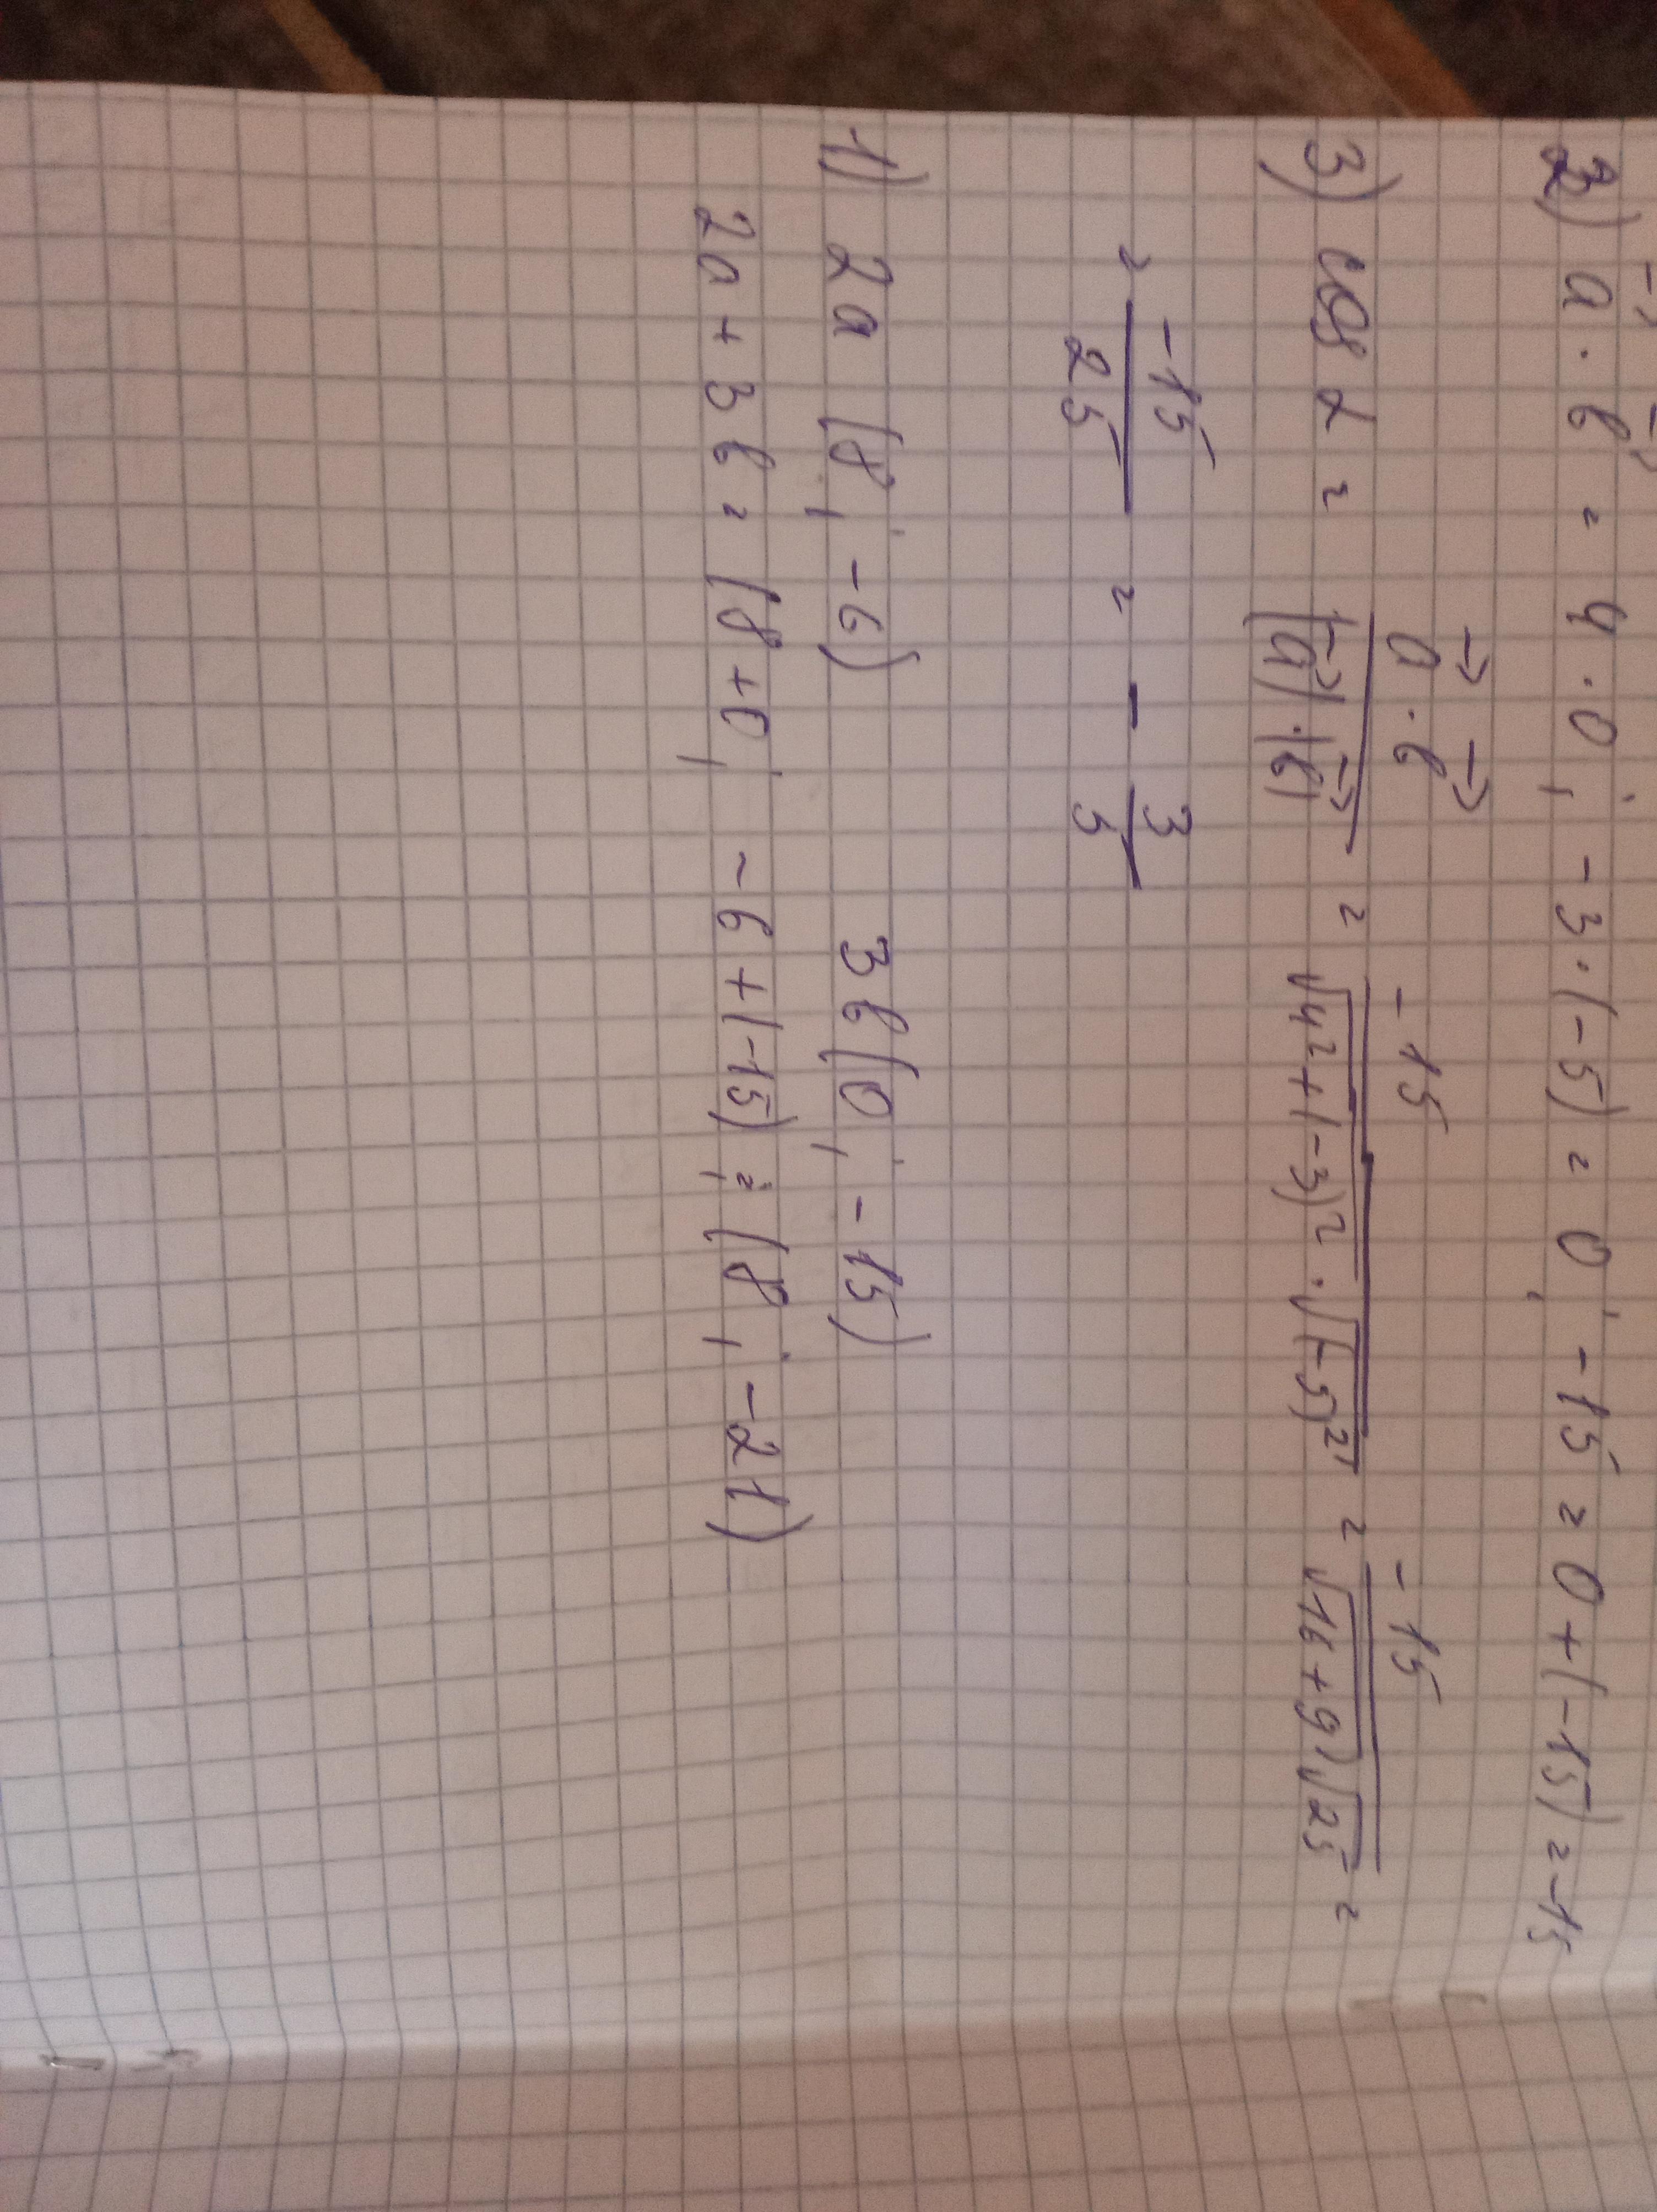 2) a⃗ · b⃗ = 4 · 0; -3 · (-5) = 0; -15 = 0 + (-15) = -15
3) cos α = a⃗ · b⃗ / |a⃗| · |b⃗| = -15 / √(4² + (-3)²) · √((-5)²) = -15 / √(16+9) √25 =
= -15/25 = - 3/5
1) 2a (8; -6) 3b (0; -15)
2a + 3b = (8+0; -6+(-15)) = (8; -21)